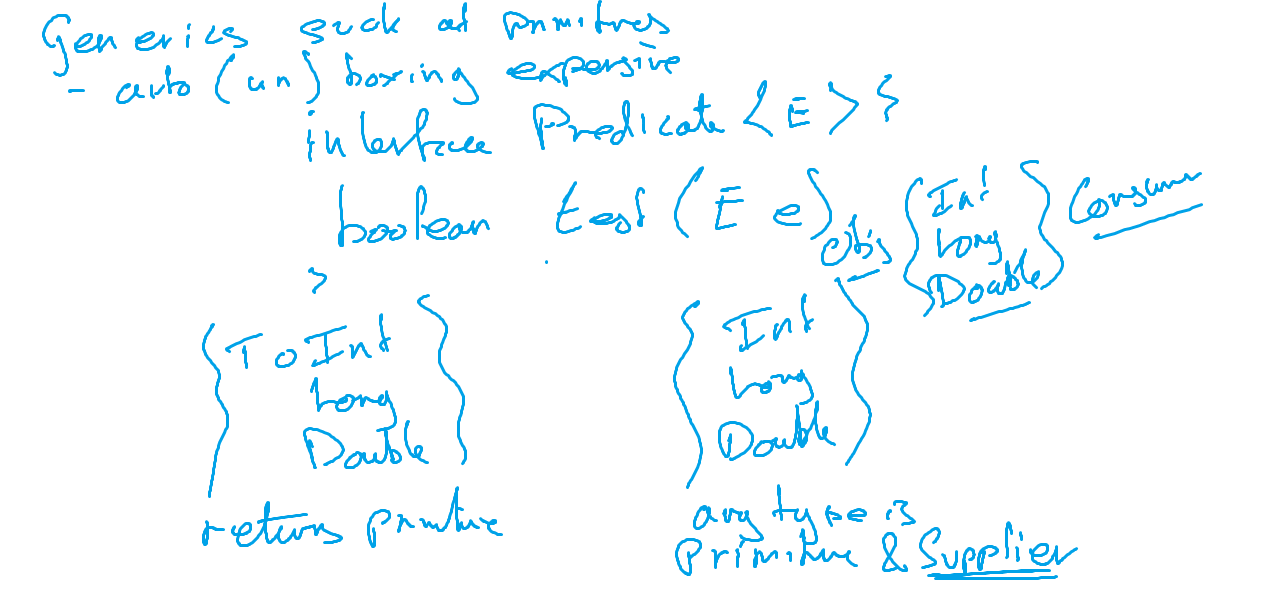 Generics suck at primitives
- auto (un) boxing expensive
interface Predicate <E> {
boolean test (E e)
}
Obj { Int Long Double } Consumer
{ To Int Long Double }
returns primitive
{ Int Long Double }
arg type is
primitive & Supplier